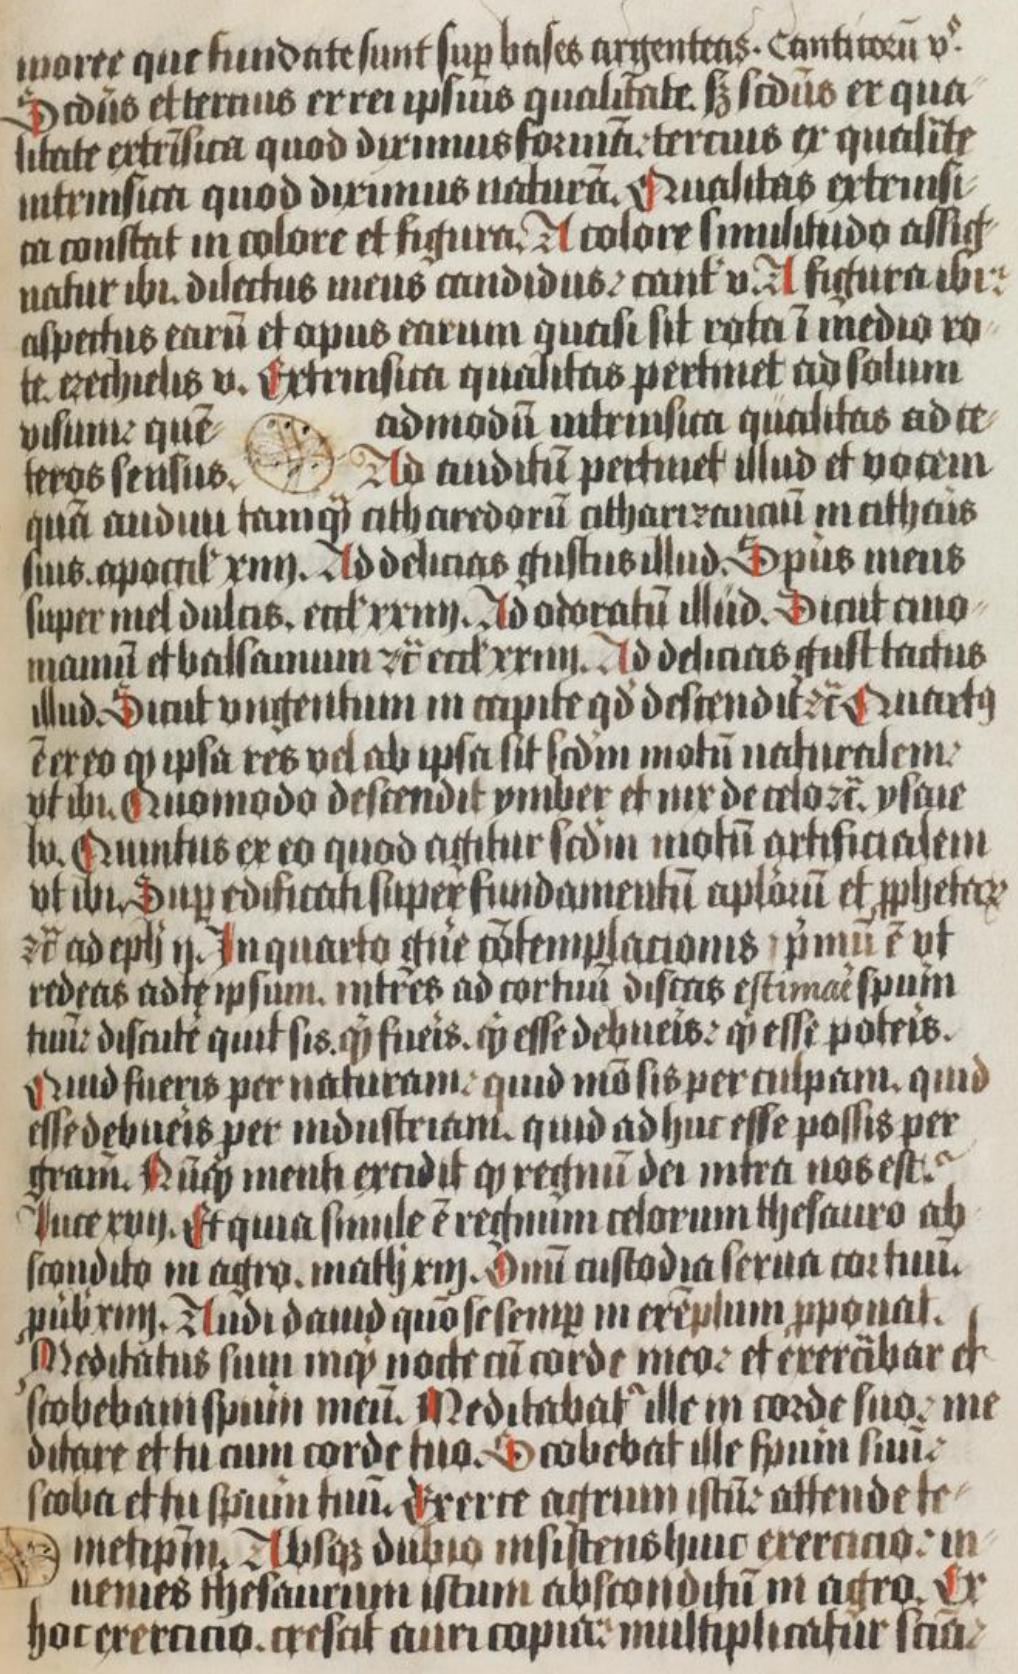 moree que fundate sunt sup bases argenteas. Canticorū v°.
Scdūs et tercius ex rei ipsius qualitate. sꝫ scdūs ex qua-
litate extrīsica quod diximus formā: tercius ex qualitte
intrinsica quod diximus naturā. Qualitas extrinsi-
ca constat in colore et figura. A colore similitudo assig-
natur ibi. dilectus meus candidus: cant v. A figura ibi:
aspectus earū et opus earum quasi sit rota ī medio ro-
te. ezechielis v. Extrinsica qualitas pertinet ad solum
visum: quē admodū intrinsica qualitas ad ce-
teros sensus. Ad auditū pertinet illud et vocem
quā audiui tamq̄ citharedorū citharizanciū in citharis
suis. apocal xiiij. Ad delicias gustus illud. Spūs meus
super mel dulcis. eccl xxiiij. Ad odoratū illud. Sicut cino-
mamū et balsamum ⁊c̄ eccl xxiiij. Ad delicias gust tactus
illud. Sicut vngentum in capite qd̄ descendit ⁊c̄ Quartꝰ
ē ex eo qꝫ ipsa res vel ab ipsa sit scdm motū naturalem:
vt ibi. Quomodo descendit ymber et nix de celo ⁊c̄. ysaie
lv. Quintus ex eo quod agitur scdm motū artificialem
vt ibi. Sup edificati super fundamentū aplorū et ꝓphetaꝝ
⁊c̄ ad eph ij. In quarto gn̄e cōtemplacionis pmū ē vt
redeas ad te ipsum. intres ad cor tuū discas estimare spūm
tuū: discute quit sis. qͥ fueis. qͥ esse debueis: qͥ esse poteis.
Quid fueris per naturam: quid mō sis per culpam. quid
esse debueis per industriam. quid ad huc esse possis per
gram̄. Nūqͥ menti excidit qꝫ regnū dei intra nos est.
luce xvij. Et quia simile ē regnum celorum thesauro ab
scondito in agro. math xiij. Omī custodia serua cor tuū.
pūb xiiij. Audi dauid quō se semꝑ in exēplum ꝓponat.
Meditatus sum inqͥ nocte cū corde meo: et exercābar et
scobebam spūm meū. Meditabat ille in corde suo: me
ditare et tu cum corde tuo. Scobebat ille spūm suū:
scoba et tu spūm tuū. Exerce agrum istū: attende te-
metipm̄. Absqꝫ dubio insistens huic exercicio: in-
uenies thesaurum istum absconditū in agro. Ex
hoc exercicio. crescit auri copia: multiplicatur sciā: